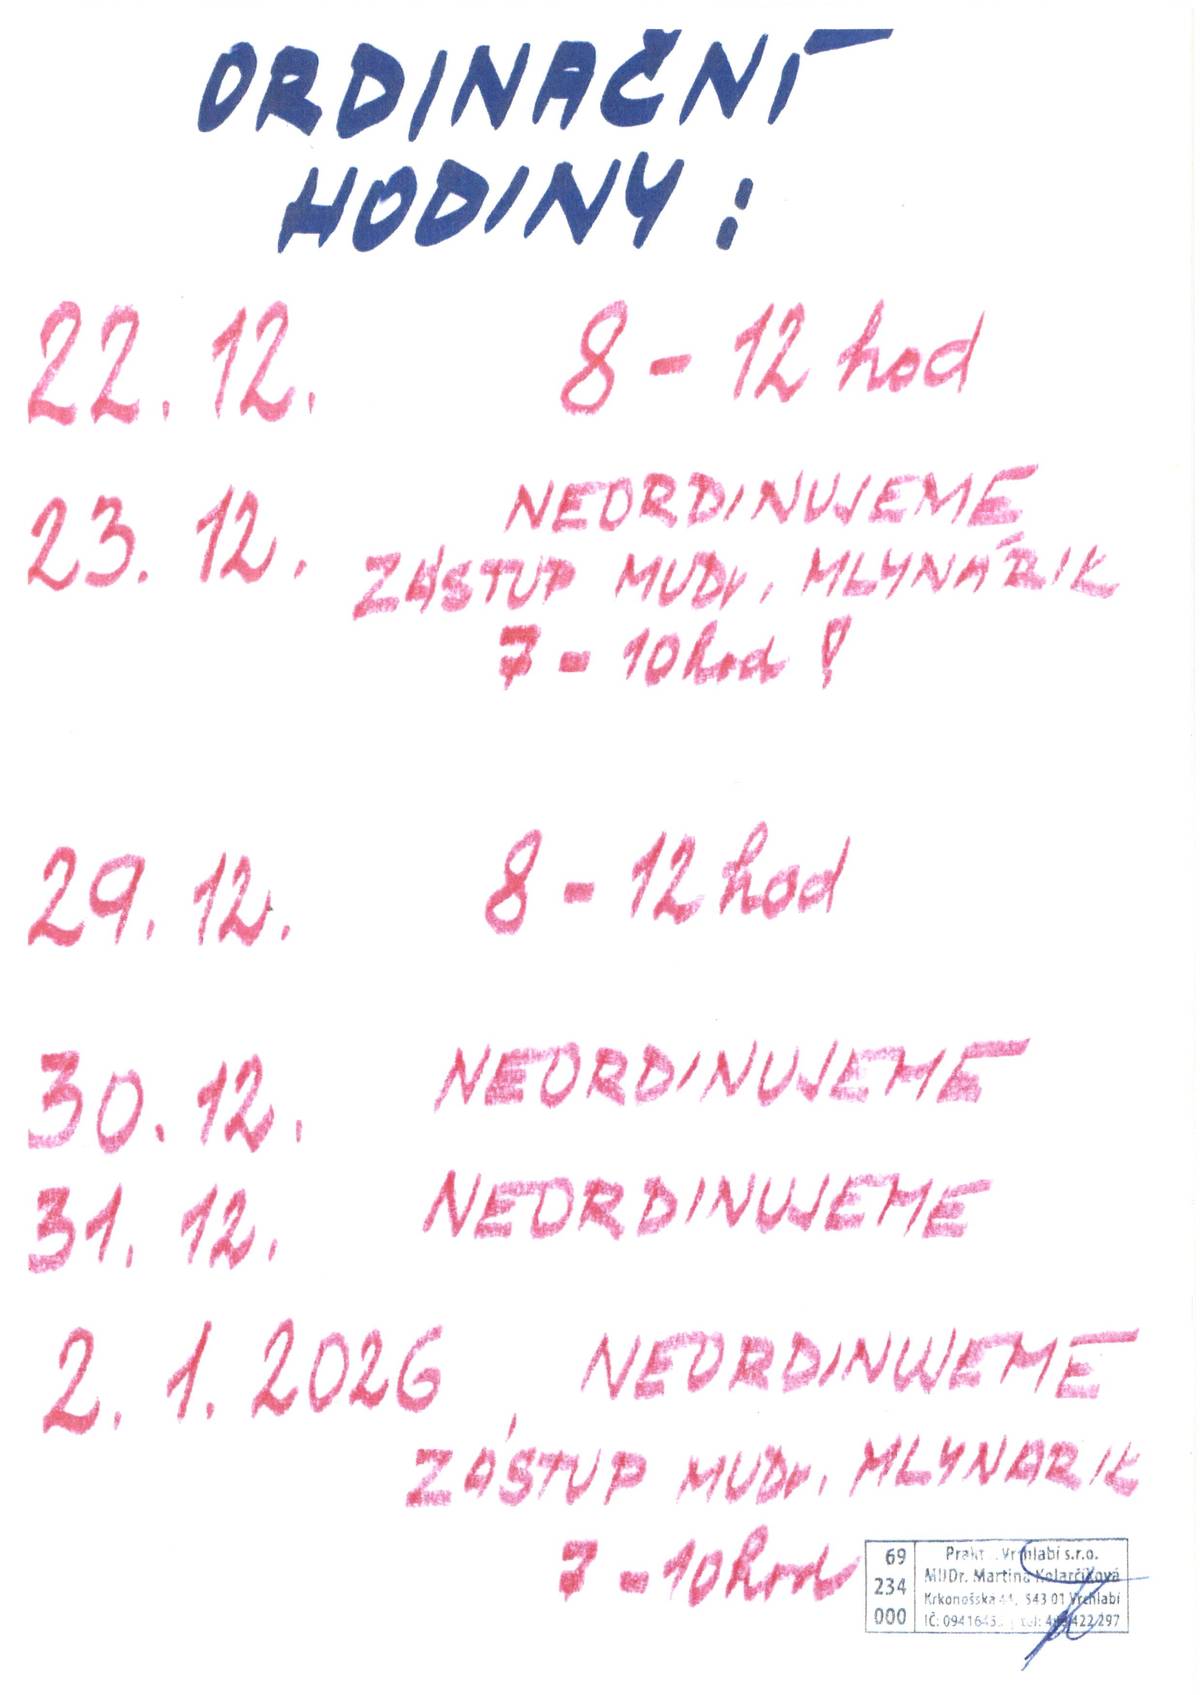 ORDINAČNÍ
HODINY:
22. 12. 8 - 12 hod
23. 12. NEORDINUJEME
ZÁSTUP MUDr. MLYNÁŘIK
7 - 10 hod!
29. 12. 8 - 12 hod
30. 12. NEORDINUJEME
31. 12. NEORDINUJEME
2. 1. 2026 NEORDINUJEME
ZÁSTUP MUDr. MLYNARIK
7 - 10 hod
69
234
000
Vrchlabí s.r.o.
MUDr. Martina Kolarčíková
Krkonošská 543 01 Vrchlabí
IČ: tel: